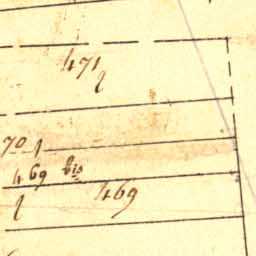 471
70
469 bis
469